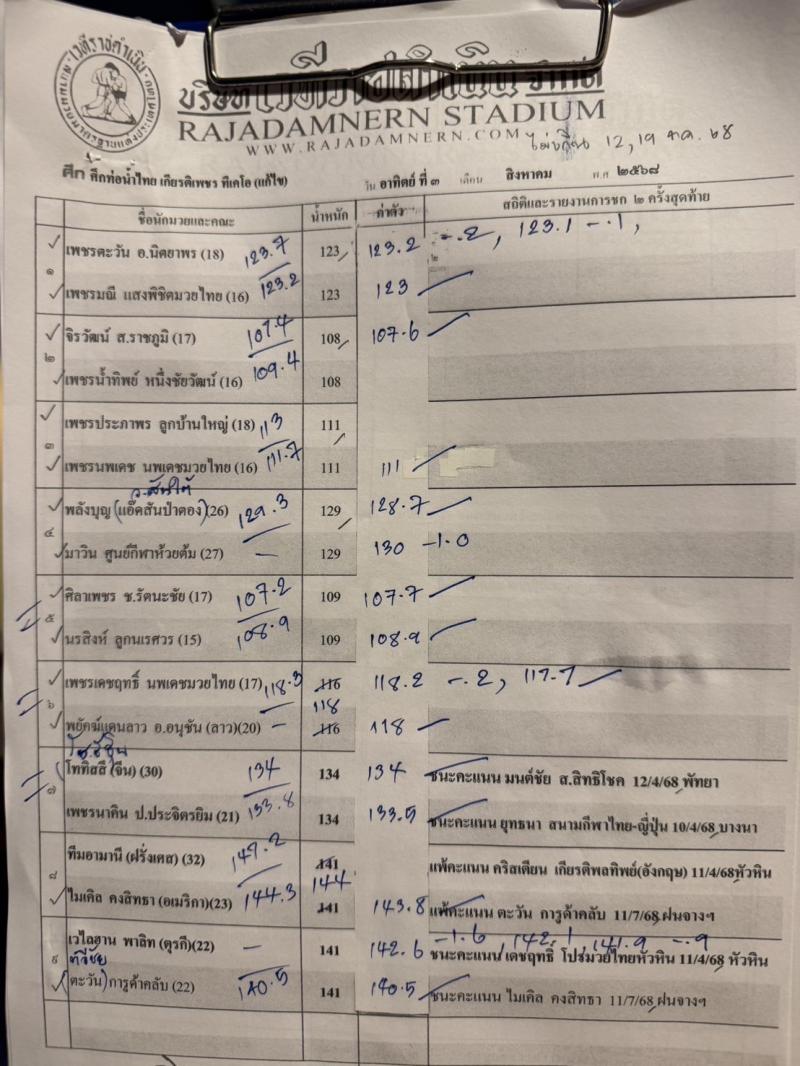 บริษัทเวทีราชดำเนิน จำกัด
RAJADAMNERN STADIUM
WWW.RAJADAMNERN.COM
12, 19 ต.ค. 68
ศึก ศึกท่อน้ำไทย เกียรติเพชร ทีเคโอ (แก้ไข) วัน อาทิตย์ ที่ ๓ เดือน สิงหาคม พ.ศ ๒๕๖๘
ชื่อนักมวยและคณะ น้ำหนัก ค่าตัว สถิติและรายงานการชก ๒ ครั้งสุดท้าย
เพชรตะวัน อ.นิตยาพร (18) 123.7 123 123.2 -.2, 123.1 -.1,
๑
เพชรมณี แสงพิชิตมวยไทย (16) 123.2 123 123
จิรวัฒน์ ส.ราชภูมิ (17) 107.4 108 107.6
๒
เพชรน้ำทิพย์ หนึ่งชัยวัฒน์ (16) 109.4 108
เพชรประภาพร ลูกบ้านใหญ่ (18) 113 111
๓
เพชรนพเดช นพเดชมวยไทย (16) 111.7 111 111
พลังบุญ (แอ๊ดสันป่าตอง)(26) 129.3 129 128.7
๔
มาวิน ศูนย์กีฬาห้วยต้ม (27) – 129 130 -1.0
ศิลาเพชร ช.รัตนะชัย (17) 107.2 109 107.7
๕
นรสิงห์ ลูกนเรศวร (15) 108.9 109 108.9
เพชรเดชฤทธิ์ นพเดชมวยไทย (17) 118.3 116 118.2 -.2, 117.7
118
๖
พยัคฆ์แดนลาว อ.อนุชัน (ลาว)(20) – 116 118
โททิสสึ (จีน) (30) 134 134 134 ชนะคะแนน มนต์ชัย ส.สิทธิโชค 12/4/68 พัทยา
๗
เพชรนาคิน ป.ประจิตรยิม (21) 133.8 134 133.5 ชนะคะแนน ยุทธนา สนามกีฬาไทย-ญี่ปุ่น 10/4/68 บางนา
ทีมอามานี (ฝรั่งเศส) (32) 147.2 141 แพ้คะแนน คริสเตียน เกียรติพลทิพย์(อังกฤษ) 11/4/68หัวหิน
144
๘
ไมเคิล คงสิทธา (อเมริกา)(23) 144.3 141 143.8 แพ้คะแนน ตะวัน การูด้าคลับ 11/7/68 ฝนจางฯ
-1.6, 142.1, 141.9 -.9
เวไลฮาน พาลิท (ตุรกี)(22) – 141 142.6 ชนะคะแนน เดชฤทธิ์ โปร่มวยไทยหัวหิน 11/4/68 หัวหิน
๙
(ตะวัน) การูด้าคลับ (22) 140.5 141 140.5 ชนะคะแนน ไมเคิล คงสิทธา 11/7/68 ฝนจางฯ